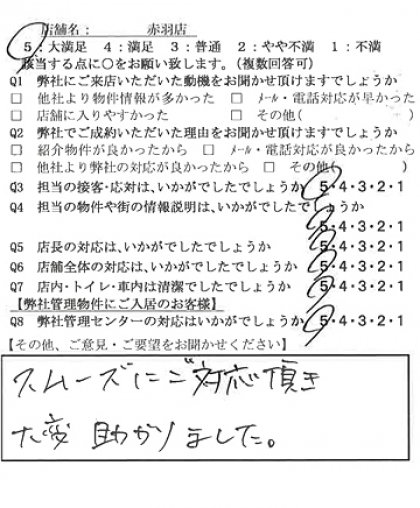 店舗名： 赤羽店
5：大満足 4：満足 3：普通 2：やや不満 1：不満
該当する点に○をお願い致します。（複数回答可）
Q1 弊社にご来店いただいた動機をお聞かせ頂けますでしょうか
□ 他社より物件情報が多かった □ メール・電話対応が早かった
□ 店舗に入りやすかった □ その他( 
Q2 弊社でご成約いただいた理由をお聞かせ頂けますでしょうか
□ 紹介物件が良かったから □ メール・電話対応が良かったから
□ 他社より弊社の対応が良かったから □ その他( )
Q3 担当の接客・応対は、いかがでしたでしょうか 5・4・3・2・1
Q4 担当の物件や街の情報説明は、いかがでしたでしょうか
5・4・3・2・1
Q5 店長の対応は、いかがでしたでしょうか 5・4・3・2・1
Q6 店舗全体の対応は、いかがでしたでしょうか 5・4・3・2・1
Q7 店内・トイレ・車内は清潔でしたでしょうか 5・4・3・2・1
【弊社管理物件にご入居のお客様】
Q8 弊社管理センターの対応はいかがでしょうか 5・4・3・2・1
【その他、ご意見・ご要望をお聞かせください】
スムーズにご対応頂き
大変 助かりました。